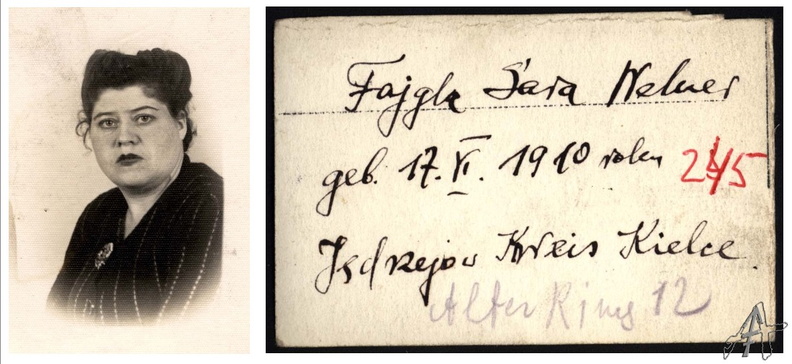 Fajgla Sara Welner
geb. 17.VI. 1910 roku 245
Jędrzejów Kreis Kielce.
Alter Ring 12